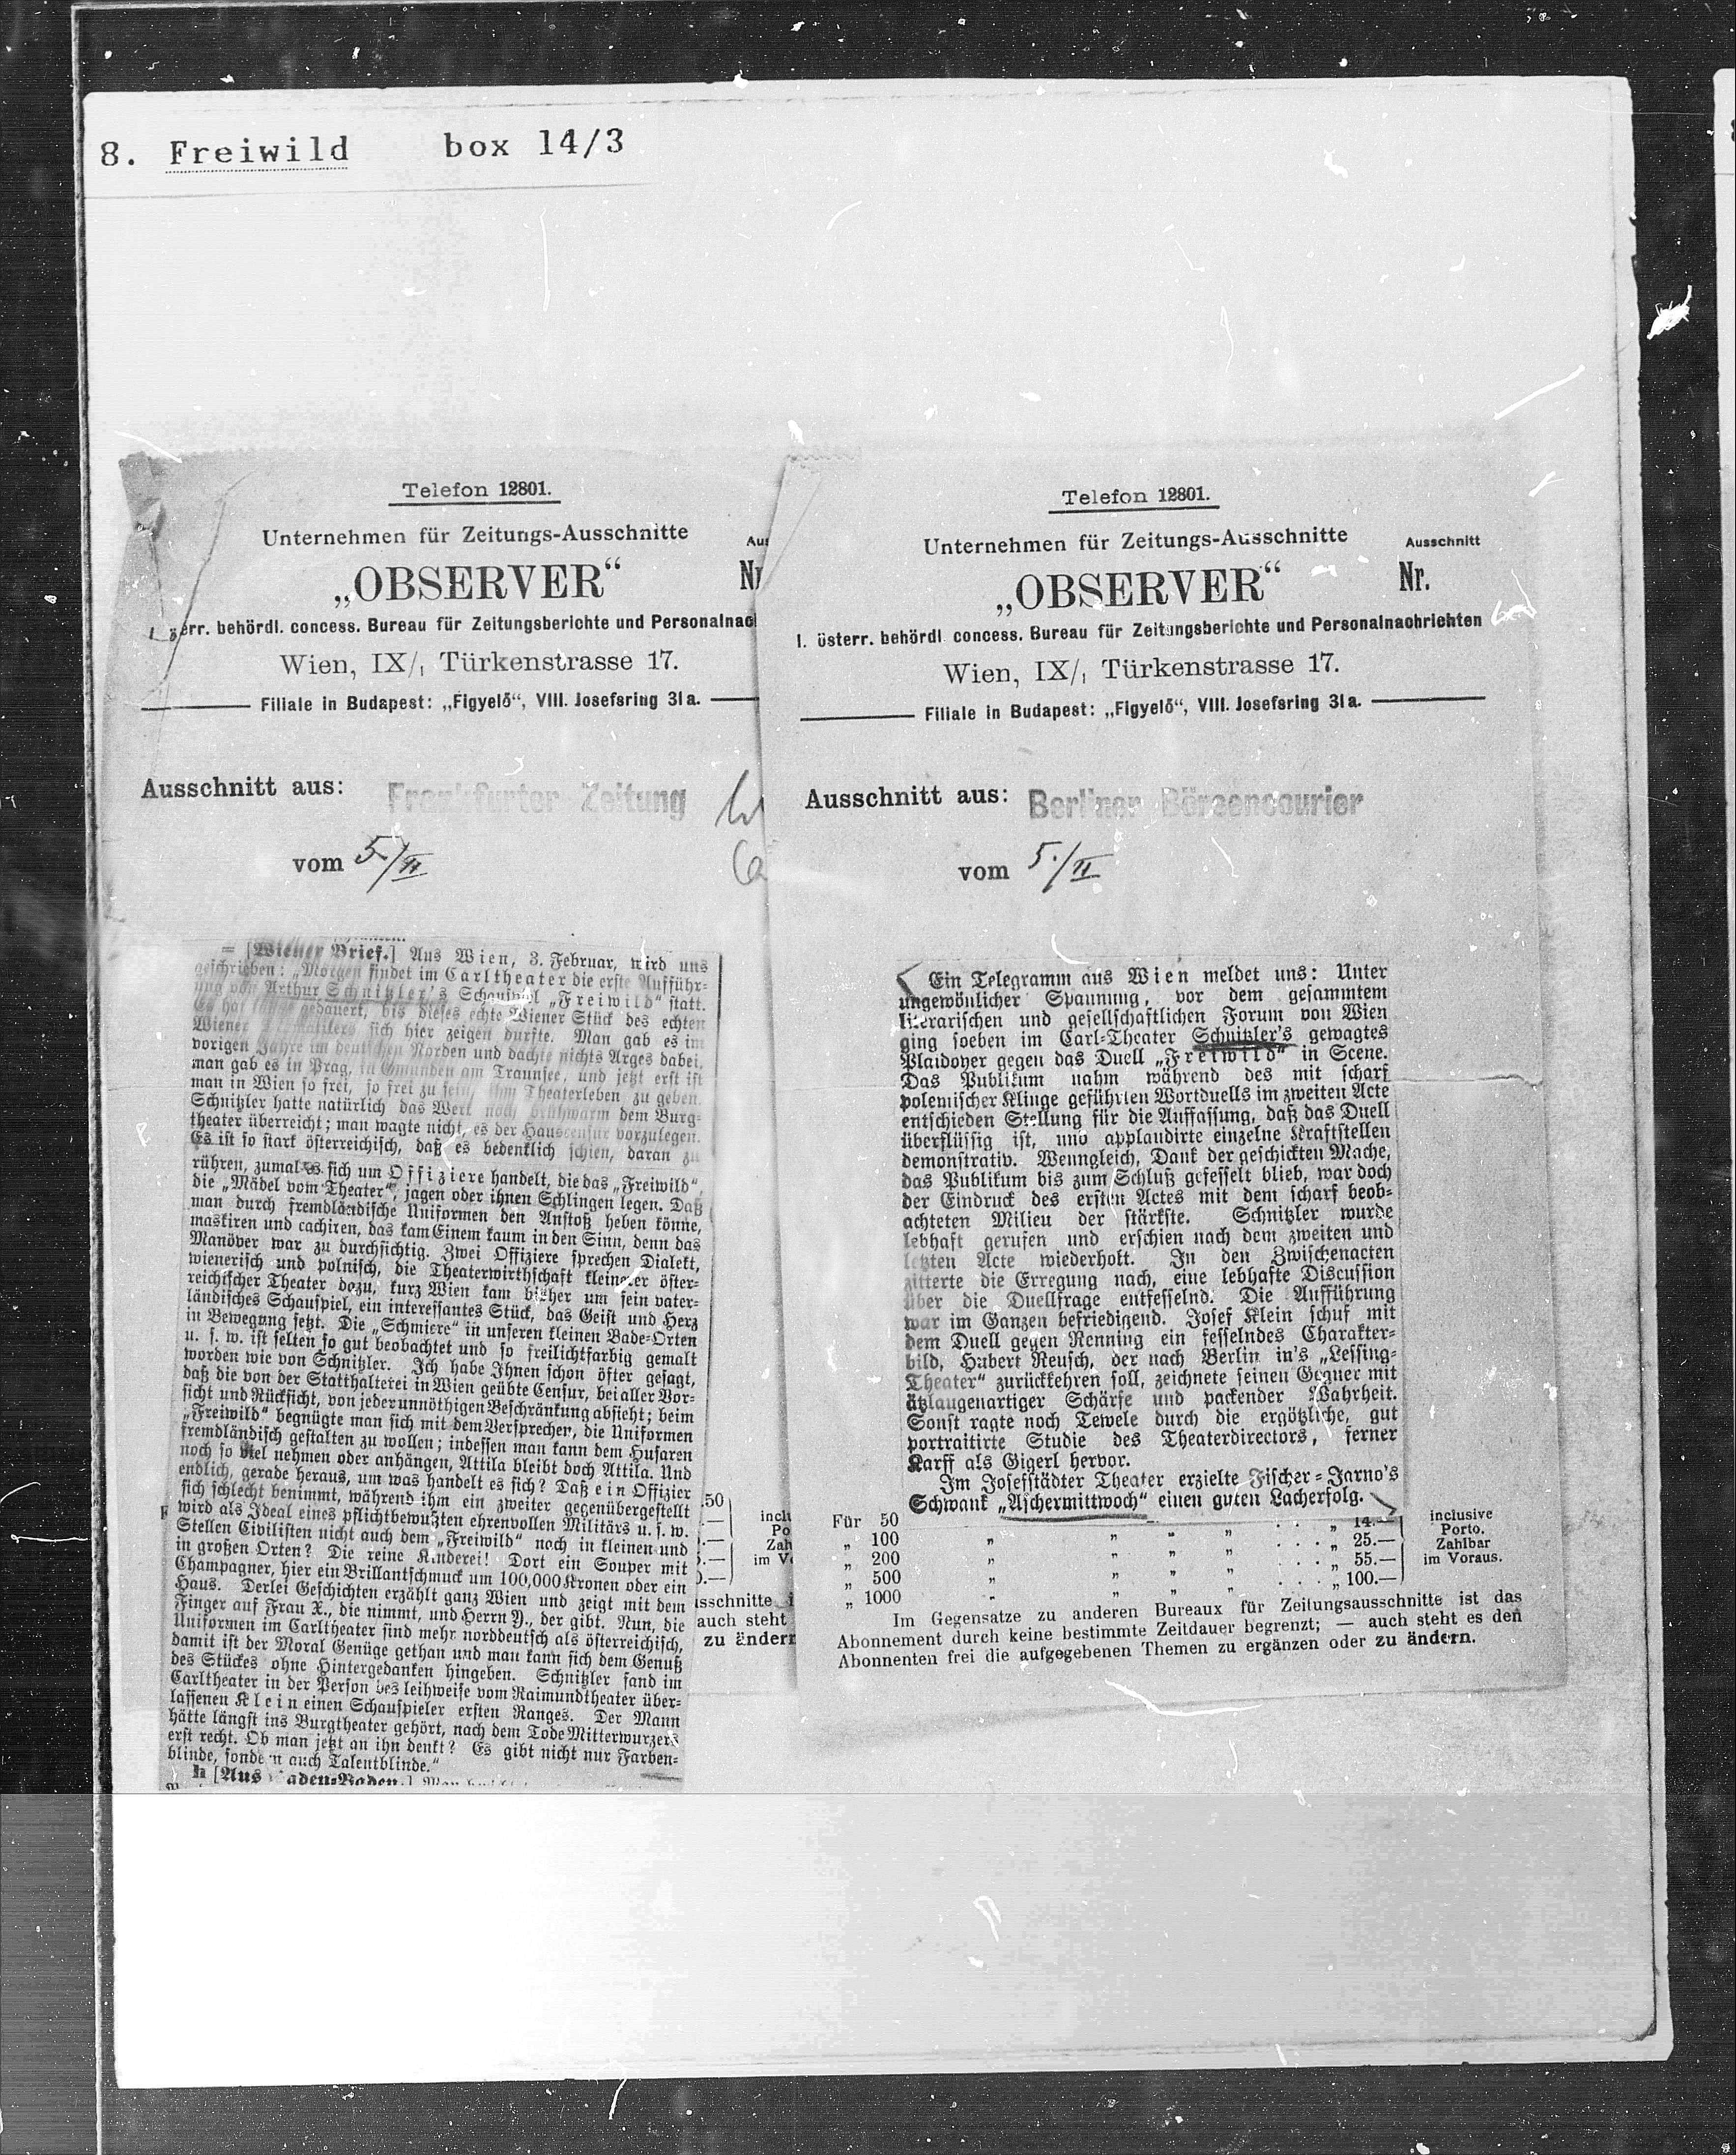 8. Freiwild box 14/3
Telefon 12801.
Unternehmen für Zeitungs-Ausschnitte
„OBSERVER“
österr. behördl. concess. Bureau für Zeitungsberichte und Personalnac
Wien, IX/1 Türkenstrasse 17.
Filiale in Budapest: „Figyelő“, VIII. Josefsring 31a.
Ausschnitt aus: Frankfurter Zeitung
vom 5./II
= [Wiener Brief.] Aus Wien, 3. Februar, wird uns
geschrieben: „Morgen findet im Carltheater die erste Aufführ-
ung von Arthur Schnitzler's Schauspiel „Freiwild“ statt.
Es hat lange gedauert, bis dieses echte Wiener Stück des echten
Wiener sich hier zeigen durfte. Man gab es im
vorigen Jahre im deutschen Norden und dachte nichts Arges dabei,
man gab es in Prag, in Gmunden am Traunsee, und jetzt erst ist
man in Wien so frei, so frei zu sein, ihm Theaterleben zu geben.
Schnitzler hatte natürlich das Werk noch brühwarm dem Burg-
theater überreicht; man wagte nicht, es der Hauscensur vorzulegen.
Es ist so stark österreichisch, daß es bedenklich schien, daran zu
rühren, zumal es sich um Offiziere handelt, die das „Freiwild“,
die „Mädel vom Theater“, jagen oder ihnen Schlingen legen. Daß
man durch fremdländische Uniformen den Anstoß heben könne,
maskiren und cachiren, das kam Einem kaum in den Sinn, denn das
Manöver war zu durchsichtig. Zwei Offiziere sprechen Dialekt,
wienerisch und polnisch, die Theaterwirthschaft kleinerer öster-
reichischer Theater dazu, kurz Wien kam bisher um sein vater-
ländisches Schauspiel, ein interessantes Stück, das Geist und Herz
in Bewegung setzt. Die „Schmiere“ in unseren kleinen Bade-Orten
u. s. w. ist selten so gut beobachtet und so freilichtfarbig gemalt
worden wie von Schnitzler. Ich habe Ihnen schon öfter gesagt,
daß die von der Statthalterei in Wien geübte Censur, bei aller Vor-
sicht und Rücksicht, von jeder unnöthigen Beschränkung absieht; beim
„Freiwild“ begnügte man sich mit dem Versprechen, die Uniformen
fremdländisch gestalten zu wollen; indessen man kann dem Husaren
noch so viel nehmen oder anhängen, Attila bleibt doch Attila. Und
endlich, gerade heraus, um was handelt es sich? Daß ein Offizier
sich schlecht benimmt, während ihm ein zweiter gegenübergestellt
wird als Ideal eines pflichtbewußten ehrenvollen Militärs u. s. w.
Stellen Civilisten nicht auch dem „Freiwild“ nach in kleinen und
in großen Orten? Die reine Kinderei! Dort ein Souper mit
Champagner, hier ein Brillantschmuck um 100,000 Kronen oder ein
Haus. Derlei Geschichten erzählt ganz Wien und zeigt mit dem
Finger auf Frau X., die nimmt, und Herrn Y., der gibt. Nun, die
Uniformen im Carltheater sind mehr norddeutsch als österreichisch,
damit ist der Moral Genüge gethan und man kann sich dem Genuß
des Stückes ohne Hintergedanken hingeben. Schnitzler fand im
Carltheater in der Person des leihweise vom Raimundtheater über-
lassenen Klein einen Schauspieler ersten Ranges. Der Mann
hätte längst ins Burgtheater gehört, nach dem Tode Mitterwurzers
erst recht. Ob man jetzt an ihn denkt? Es gibt nicht nur Farben-
blinde, sondern auch Talentblinde.“
h [Aus Baden-Baden.]
Aus
Nr
.50
incl
Po
Zah
im Vo
sschnitte i
auch steht
zu ändern
Telefon 12801.
Unternehmen für Zeitungs-Ausschnitte
Ausschnitt
„OBSERVER“
Nr.
I. österr. behördl. concess. Bureau für Zeitungsberichte und Personalnachrichten
Wien, IX/1 Türkenstrasse 17.
Filiale in Budapest: „Figyelő“, VIII. Josefsring 31a.
Ausschnitt aus: Berliner Börsencourier
vom 5./II
Ein Telegramm aus Wien meldet uns: Unter
ungewönlicher Spannung, vor dem gesammtem
literarischen und gesellschaftlichen Forum von Wien
ging soeben im Carl-Theater Schnitzler's gewagtes
Plaidoyer gegen das Duell „Freiwild“ in Scene.
Das Publikum nahm während des mit scharf
polemischer Klinge geführten Wortduells im zweiten Acte
entschieden Stellung für die Auffassung, daß das Duell
überflüssig ist, und applaudirte einzelne Kraftstellen
demonstrativ. Wenngleich, Dank der geschickten Mache,
das Publikum bis zum Schluß gefesselt blieb, war doch
der Eindruck des ersten Actes mit dem scharf beob-
achteten Milieu der stärkste. Schnitzler wurde
lebhaft gerufen und erschien nach dem zweiten und
letzten Acte wiederholt. In den Zwischenacten
zitterte die Erregung nach, eine lebhafte Discussion
über die Duellfrage entfesselnd. Die Aufführung
war im Ganzen befriedigend. Josef Klein schuf mit
dem Duell gegen Renning ein fesselndes Charakter-
bild, Hubert Reusch, der nach Berlin in's „Lessing-
Theater“ zurückkehren soll, zeichnete seinen Gegner mit
ätzlaugenartiger Schärfe und packender Wahrheit.
Sonst ragte noch Tewele durch die ergötzliche, gut
portraitirte Studie des Theaterdirectors, ferner
Karff als Gigerl hervor.
Im Josefstädter Theater erzielte Fischer-Jarno's
Schwank „Aschermittwoch“ einen guten Lacherfolg.
Für 50 „ 14.— inclusive
„ 100 „ „ „ . . . „ 25.— Porto.
„ 200 „ „ „ . . . „ 55.— Zahlbar
„ 500 „ „ „ . . . „ 100.— im Voraus.
„ 1000
Im Gegensatze zu anderen Bureaux für Zeitungsausschnitte ist das
Abonnement durch keine bestimmte Zeitdauer begrenzt; — auch steht es den
Abonnenten frei die aufgegebenen Themen zu ergänzen oder zu ändern.